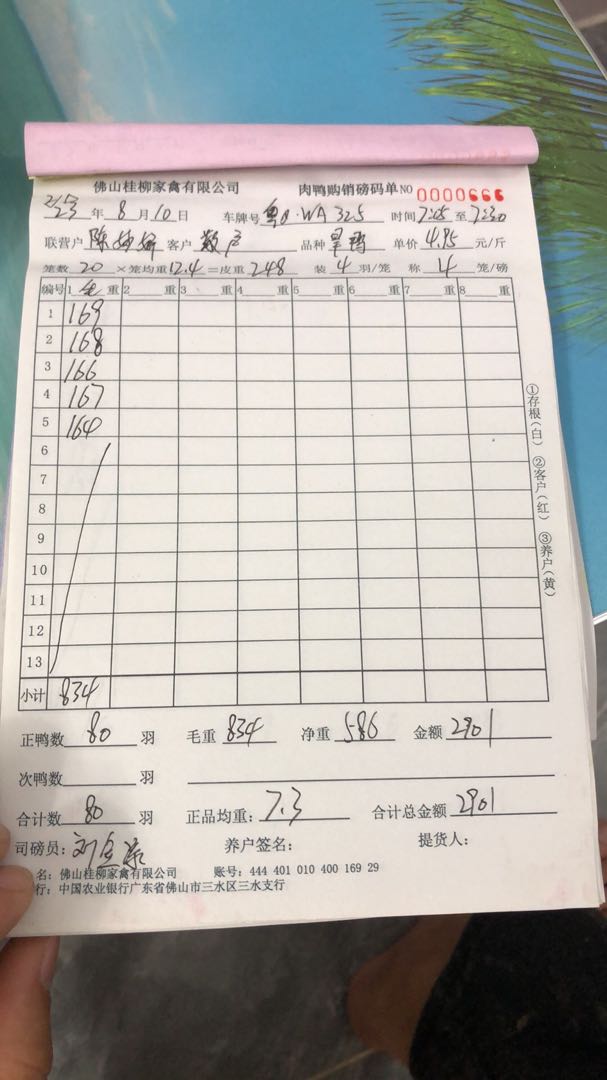 佛山桂柳家禽有限公司 肉鸭购销磅码单NO 0000666
23 年 8 月 10 日 车牌号 WA 325 时间 7:05 至 7:30
联营户 陈 客户 散户 品种 单价 4.95 元/斤
笼数 20 ×笼均重 12.4 =皮重 248 装 4 羽/笼 称 4 笼/磅
编号 1 毛 重 2 重 3 重 4 重 5 重 6 重 7 重 8 重
1 169
2 168
3 166
4 167
5 164
6
7
8
9
10
11
12
13
小计 834
①存根(白) ②客户(红) ③养户(黄)
正鸭数 80 羽 毛重 834 净重 586 金额 2901
次鸭数 羽
合计数 80 羽 正品均重: 7.3 合计总金额 2901
司磅员: 刘 养户签名: 提货人:
名: 佛山桂柳家禽有限公司 账号: 444 401 010 400 169 29
行: 中国农业银行广东省佛山市三水区三水支行